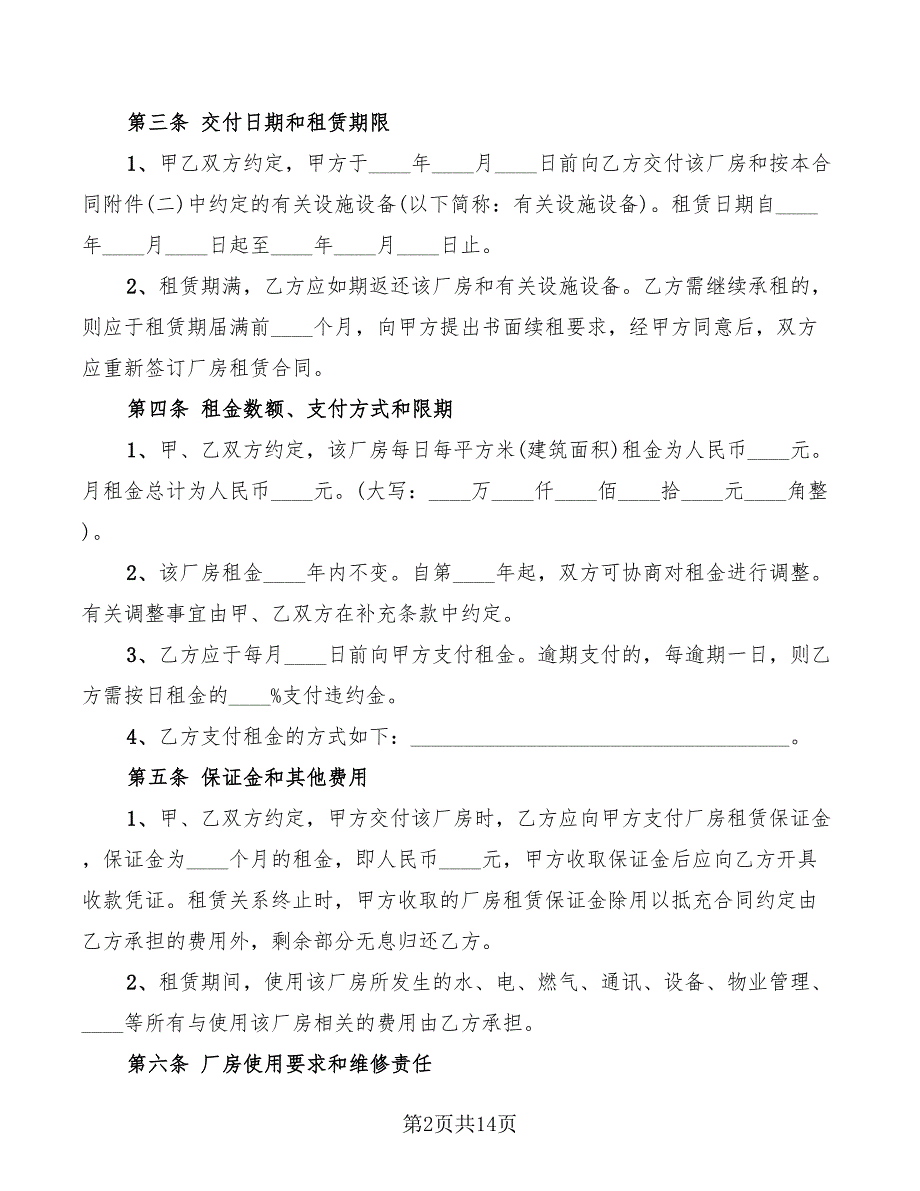 第三条 交付日期和租赁期限
1、甲乙双方约定，甲方于____年____月____日前向乙方交付该厂房和按本合
同附件(二)中约定的有关设施设备(以下简称：有关设施设备)。租赁日期自____
年____月____日起至____年____月____日止。
2、租赁期满，乙方应如期返还该厂房和有关设施设备。乙方需继续承租的，
则应于租赁期届满前____个月，向甲方提出书面续租要求，经甲方同意后，双方
应重新签订厂房租赁合同。
第四条 租金数额、支付方式和限期
1、甲、乙双方约定，该厂房每日每平方米(建筑面积)租金为人民币____元。
月租金总计为人民币____元。(大写：____万____仟____佰____拾____元____角整
)。
2、该厂房租金____年内不变。自第____年起，双方可协商对租金进行调整。
有关调整事宜由甲、乙双方在补充条款中约定。
3、乙方应于每月____日前向甲方支付租金。逾期支付的，每逾期一日，则乙
方需按日租金的____%支付违约金。
4、乙方支付租金的方式如下：____________________________________。
第五条 保证金和其他费用
1、甲、乙双方约定，甲方交付该厂房时，乙方应向甲方支付厂房租赁保证金
，保证金为____个月的租金，即人民币____元，甲方收取保证金后应向乙方开具
收款凭证。租赁关系终止时，甲方收取的厂房租赁保证金除用以抵充合同约定由
乙方承担的费用外，剩余部分无息归还乙方。
2、租赁期间，使用该厂房所发生的水、电、燃气、通讯、设备、物业管理、
____等所有与使用该厂房相关的费用由乙方承担。
第六条 厂房使用要求和维修责任
第2页共14页